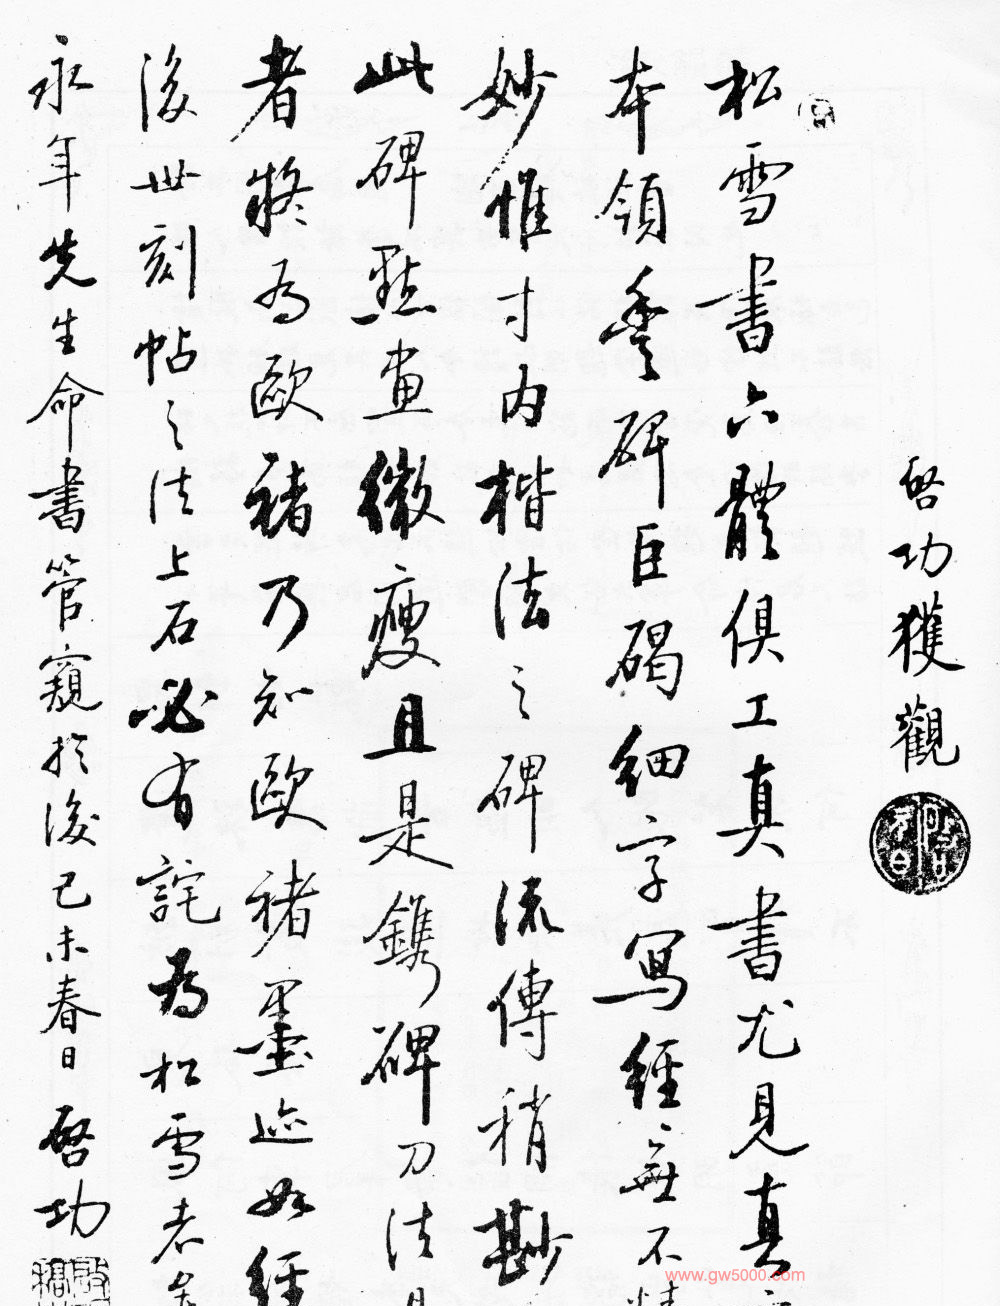 啓功獲觀
松雪書六體俱工真書尤見真
本領豐碑巨碣細字寫經無不精
妙惟寸内楷法之碑流傳稍尠
此碑點畫微瘦且是鐫碑刀法
者將為歐褚乃知歐褚墨迹如經
後世刻帖之法上石必有詫為松雪者矣
永年先生命書管窺於後己未春日 啓功
www.gw5000.com